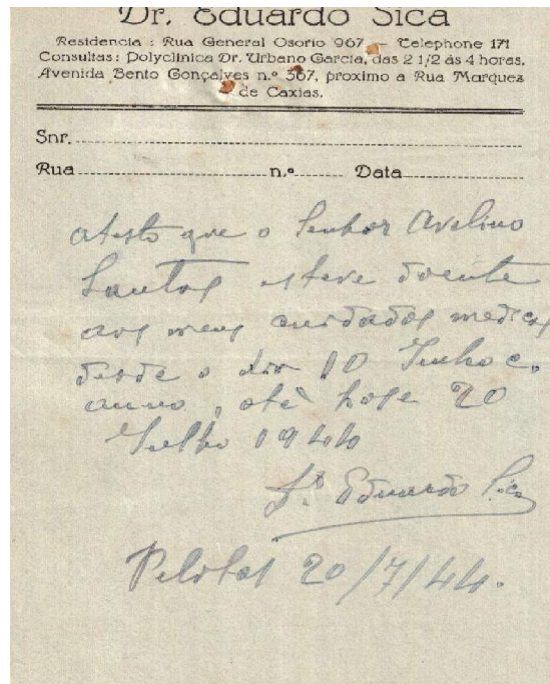 Dr. Eduardo Sica
Residencia : Rua General Osorio 967 — Telephone 171
Consultas : Polyclinica Dr. Urbano Garcia, das 2 1/2 ás 4 horas.
Avenida Bento Gonçalves n.º 367, proximo a Rua Marquez
de Caxias.
Snr.
Rua n.º Data
atesto que o Senhor Avelino
Santos esteve doente
aos meus cuidados medicos
desde o dia 10 Junho c.
anno, até hoje 20
Julho 1944
Dr Eduardo Sica
Pelotas 20/7/44.